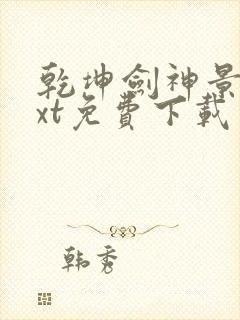 乾坤劍神景
xt免費下載
韩秀